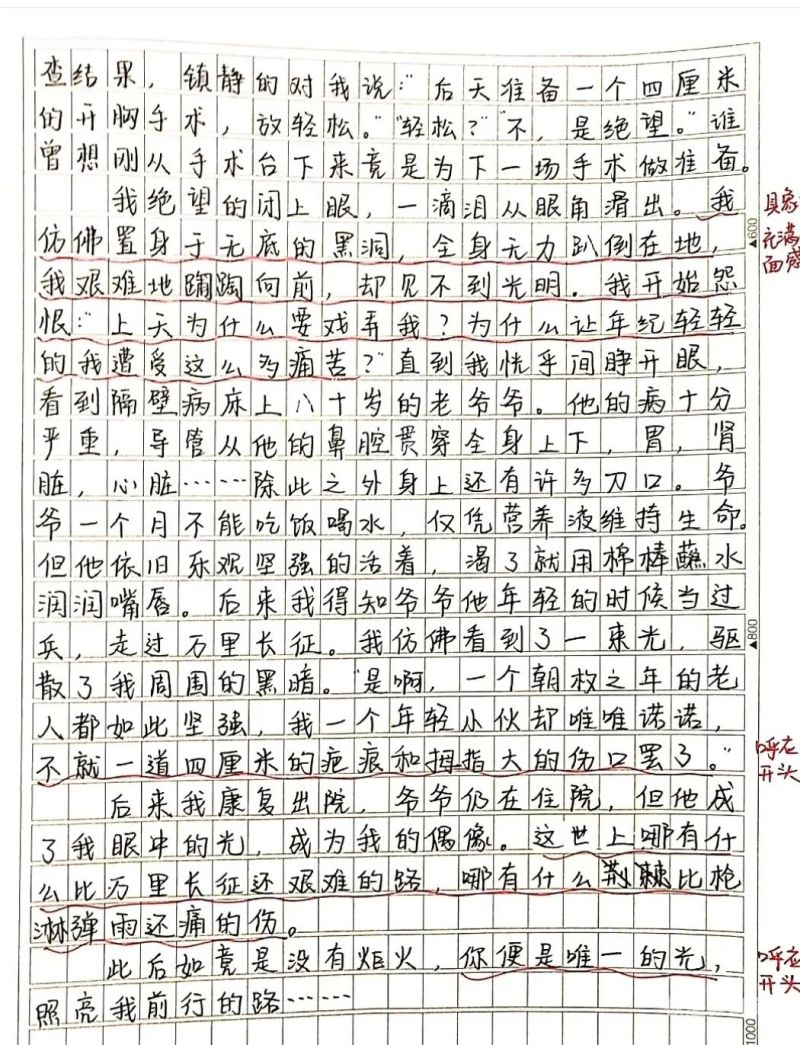 查结果，镇静的对我说：“后天准备一个四厘米
的开胸手术，放轻松。”“轻松？”“不，是绝望。”谁
曾想刚从手术台下来竟是为下一场手术做准备。
我绝望的闭上眼，一滴泪从眼角滑出。我
仿佛置身于无底的黑洞，全身无力趴倒在地，
我艰难地蹒跚向前，却见不到光明。我开始怨
恨：“上天为什么要戏弄我？为什么让年纪轻轻
的我遭受这么多痛苦？”直到我恍乎间睁开眼，
看到隔壁病床上八十岁的老爷爷。他的病十分
严重，导管从他的鼻腔贯穿全身上下，胃，肾
脏，心脏……除此之外身上还有许多刀口。爷
爷一个月不能吃饭喝水，仅凭营养液维持生命。
但他依旧乐观坚强的活着，渴了就用棉棒蘸水
润润嘴唇。后来我得知爷爷他年轻的时候当过
兵，走过万里长征。我仿佛看到了一束光，驱
散了我周围的黑暗。“是啊，一个朝枚之年的老
人都如此坚强，我一个年轻小伙却唯唯诺诺，
不就一道四厘米的疤痕和拇指大的伤口罢了。”
后来我康复出院，爷爷仍在住院，但他成
了我眼中的光，成为我的偶像。这世上哪有什
么比万里长征还艰难的路，哪有什么荆棘比枪
淋弹雨还痛的伤。
此后如竟是没有炬火，你便是唯一的光，
照亮我前行的路……
具象
充满
画感
▲600
▲800
呼应
开头
呼应
开头
1000